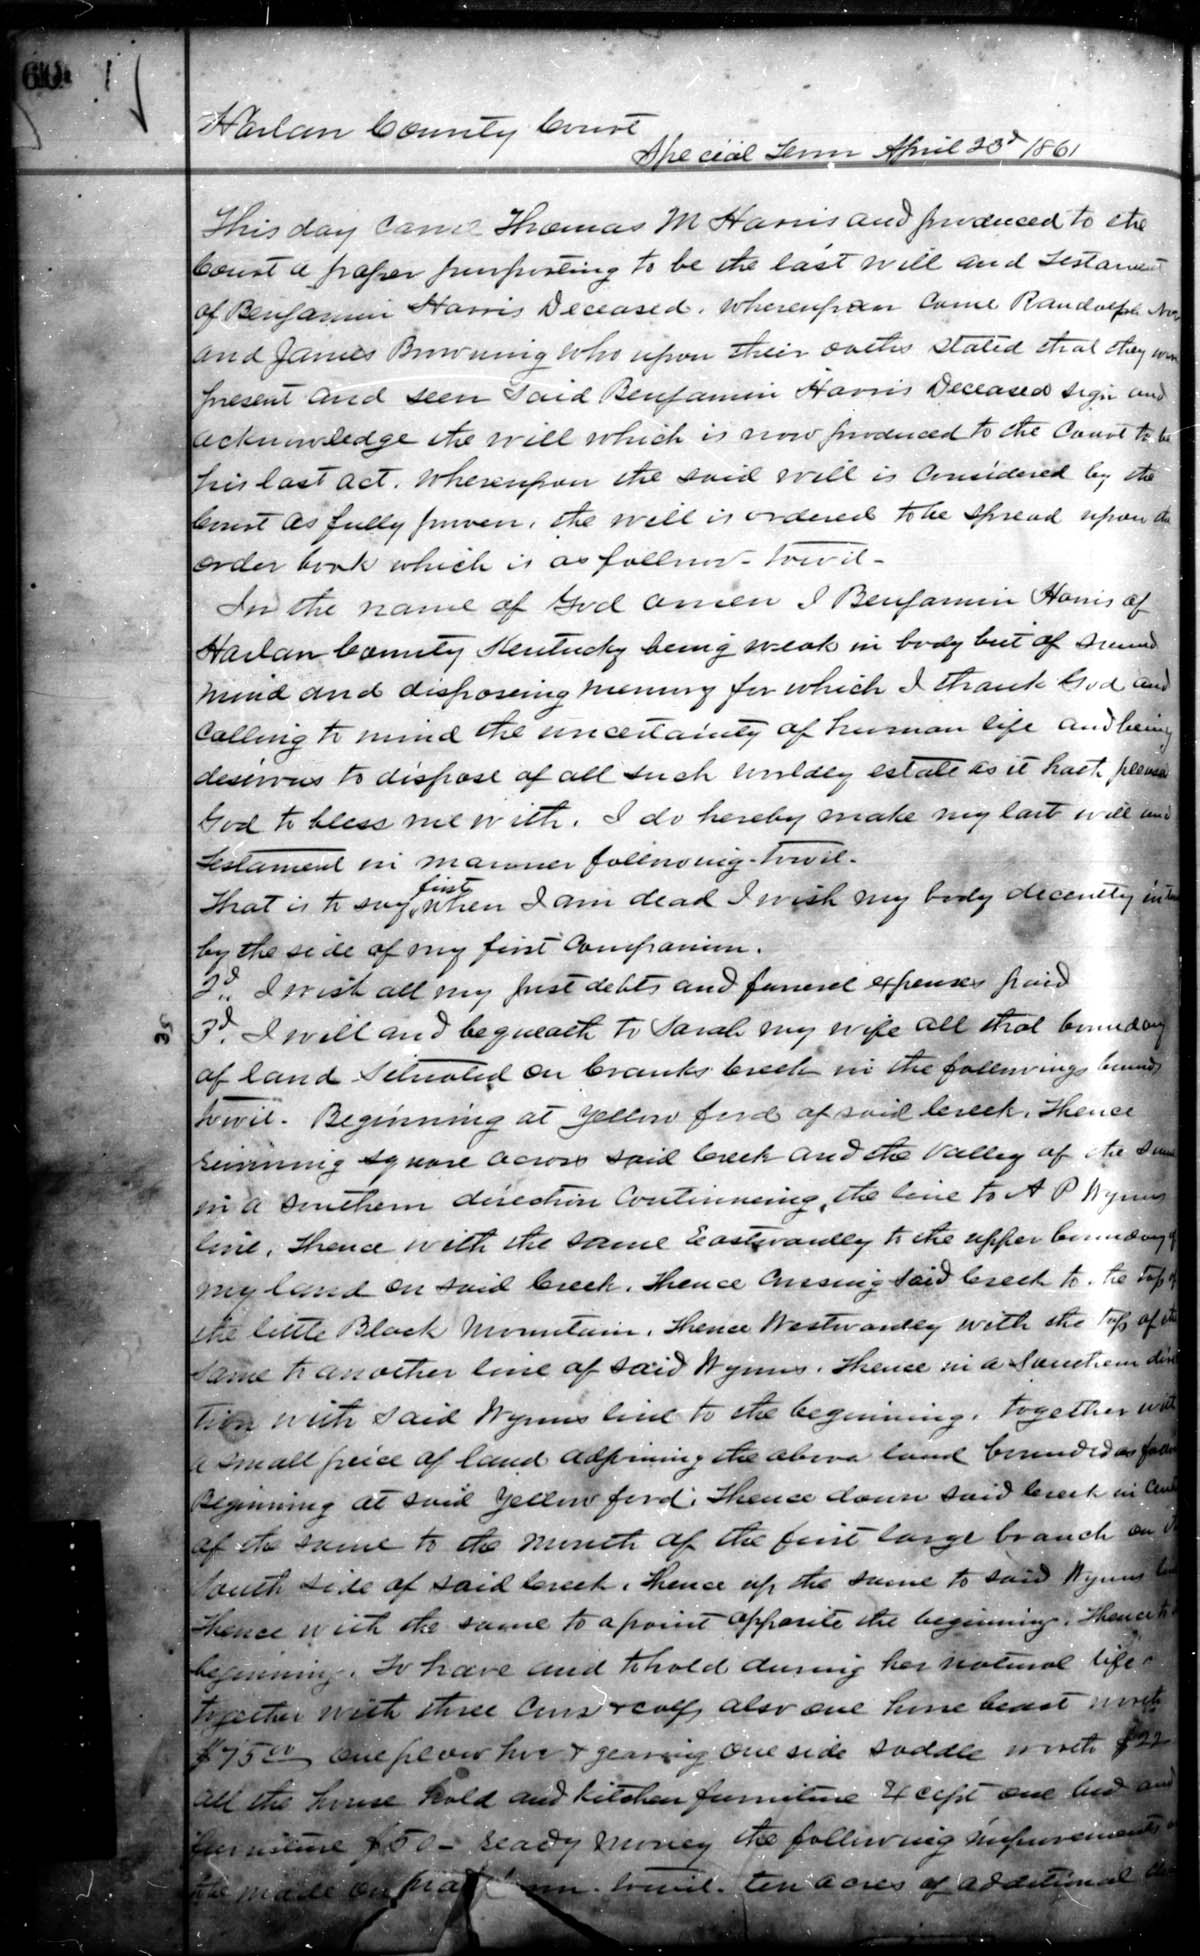 60
Harlan County Court
Special Term April 23d 1861
This day came Thomas M Harris and produced to the
Court a paper purporting to be the last will and Testament
of Benjamin Harris Deceased. Whereupon Came Randolph
and James Browning who upon their oaths stated that they were
present and seen Said Benjamin Harris Deceased sign and
acknowledge the will which is now produced to the Court to be
his last act. Whereupon the said will is Considered by the
Court as fully proven. the will is ordered to be spread upon the
order book which is as follows - towit -
In the name of God amen I Benjamin Harris of
Harlan County Kentucky being weak in body but of sound
mind and disposeing memory for which I thank God and
Calling to mind the uncertainty of human life and being
desirous to dispose of all such worldly estate as it hath pleased
God to bless me with. I do hereby make my last will and
Testament in manner following - towit -
That is to say, first when I am dead I wish my body decently
by the side of my first Companion.
2d.. I wish all my just debts and funeral expenses paid
35
3d. I will and bequeath to Sarah my wife all that boundary
of land Situated on Cranks Creek in the followings bounds
towit - Beginning at Yellow ford of said Creek. Thence
running square across said Creek and the Valley of the same
in a southern direction Continueing the line to A P Wynns
line. Thence with the same Eastwardly to the upper boundary of
my land on said Creek. Thence Crossing said Creek to the top of
the little Black Mountain. Thence Westwardly with the top of the
same to another line of said Wynns. Thence in a Southern direc
tion with said Wynns line to the beginning. together with
a small peice of land adjoining the above land bounded as follows
Beginning at said Yellow ford. Thence down said Creek in Center
of the same to the mouth of the first large branch on the
South side of said Creek. Thence up the same to said Wynns line
Thence with the same to a point opposite the beginning. Thence to
beginning. To have and to hold during her natural life
together with three Cows & calf, also one horse beast worth
$75.00 one plow hoe & gearing one side saddle worth $22
all the house hold and kitchen furniture Except one bed and
furniture $50 - ready money the following improvements
to be made on - towit - ten acres of additional